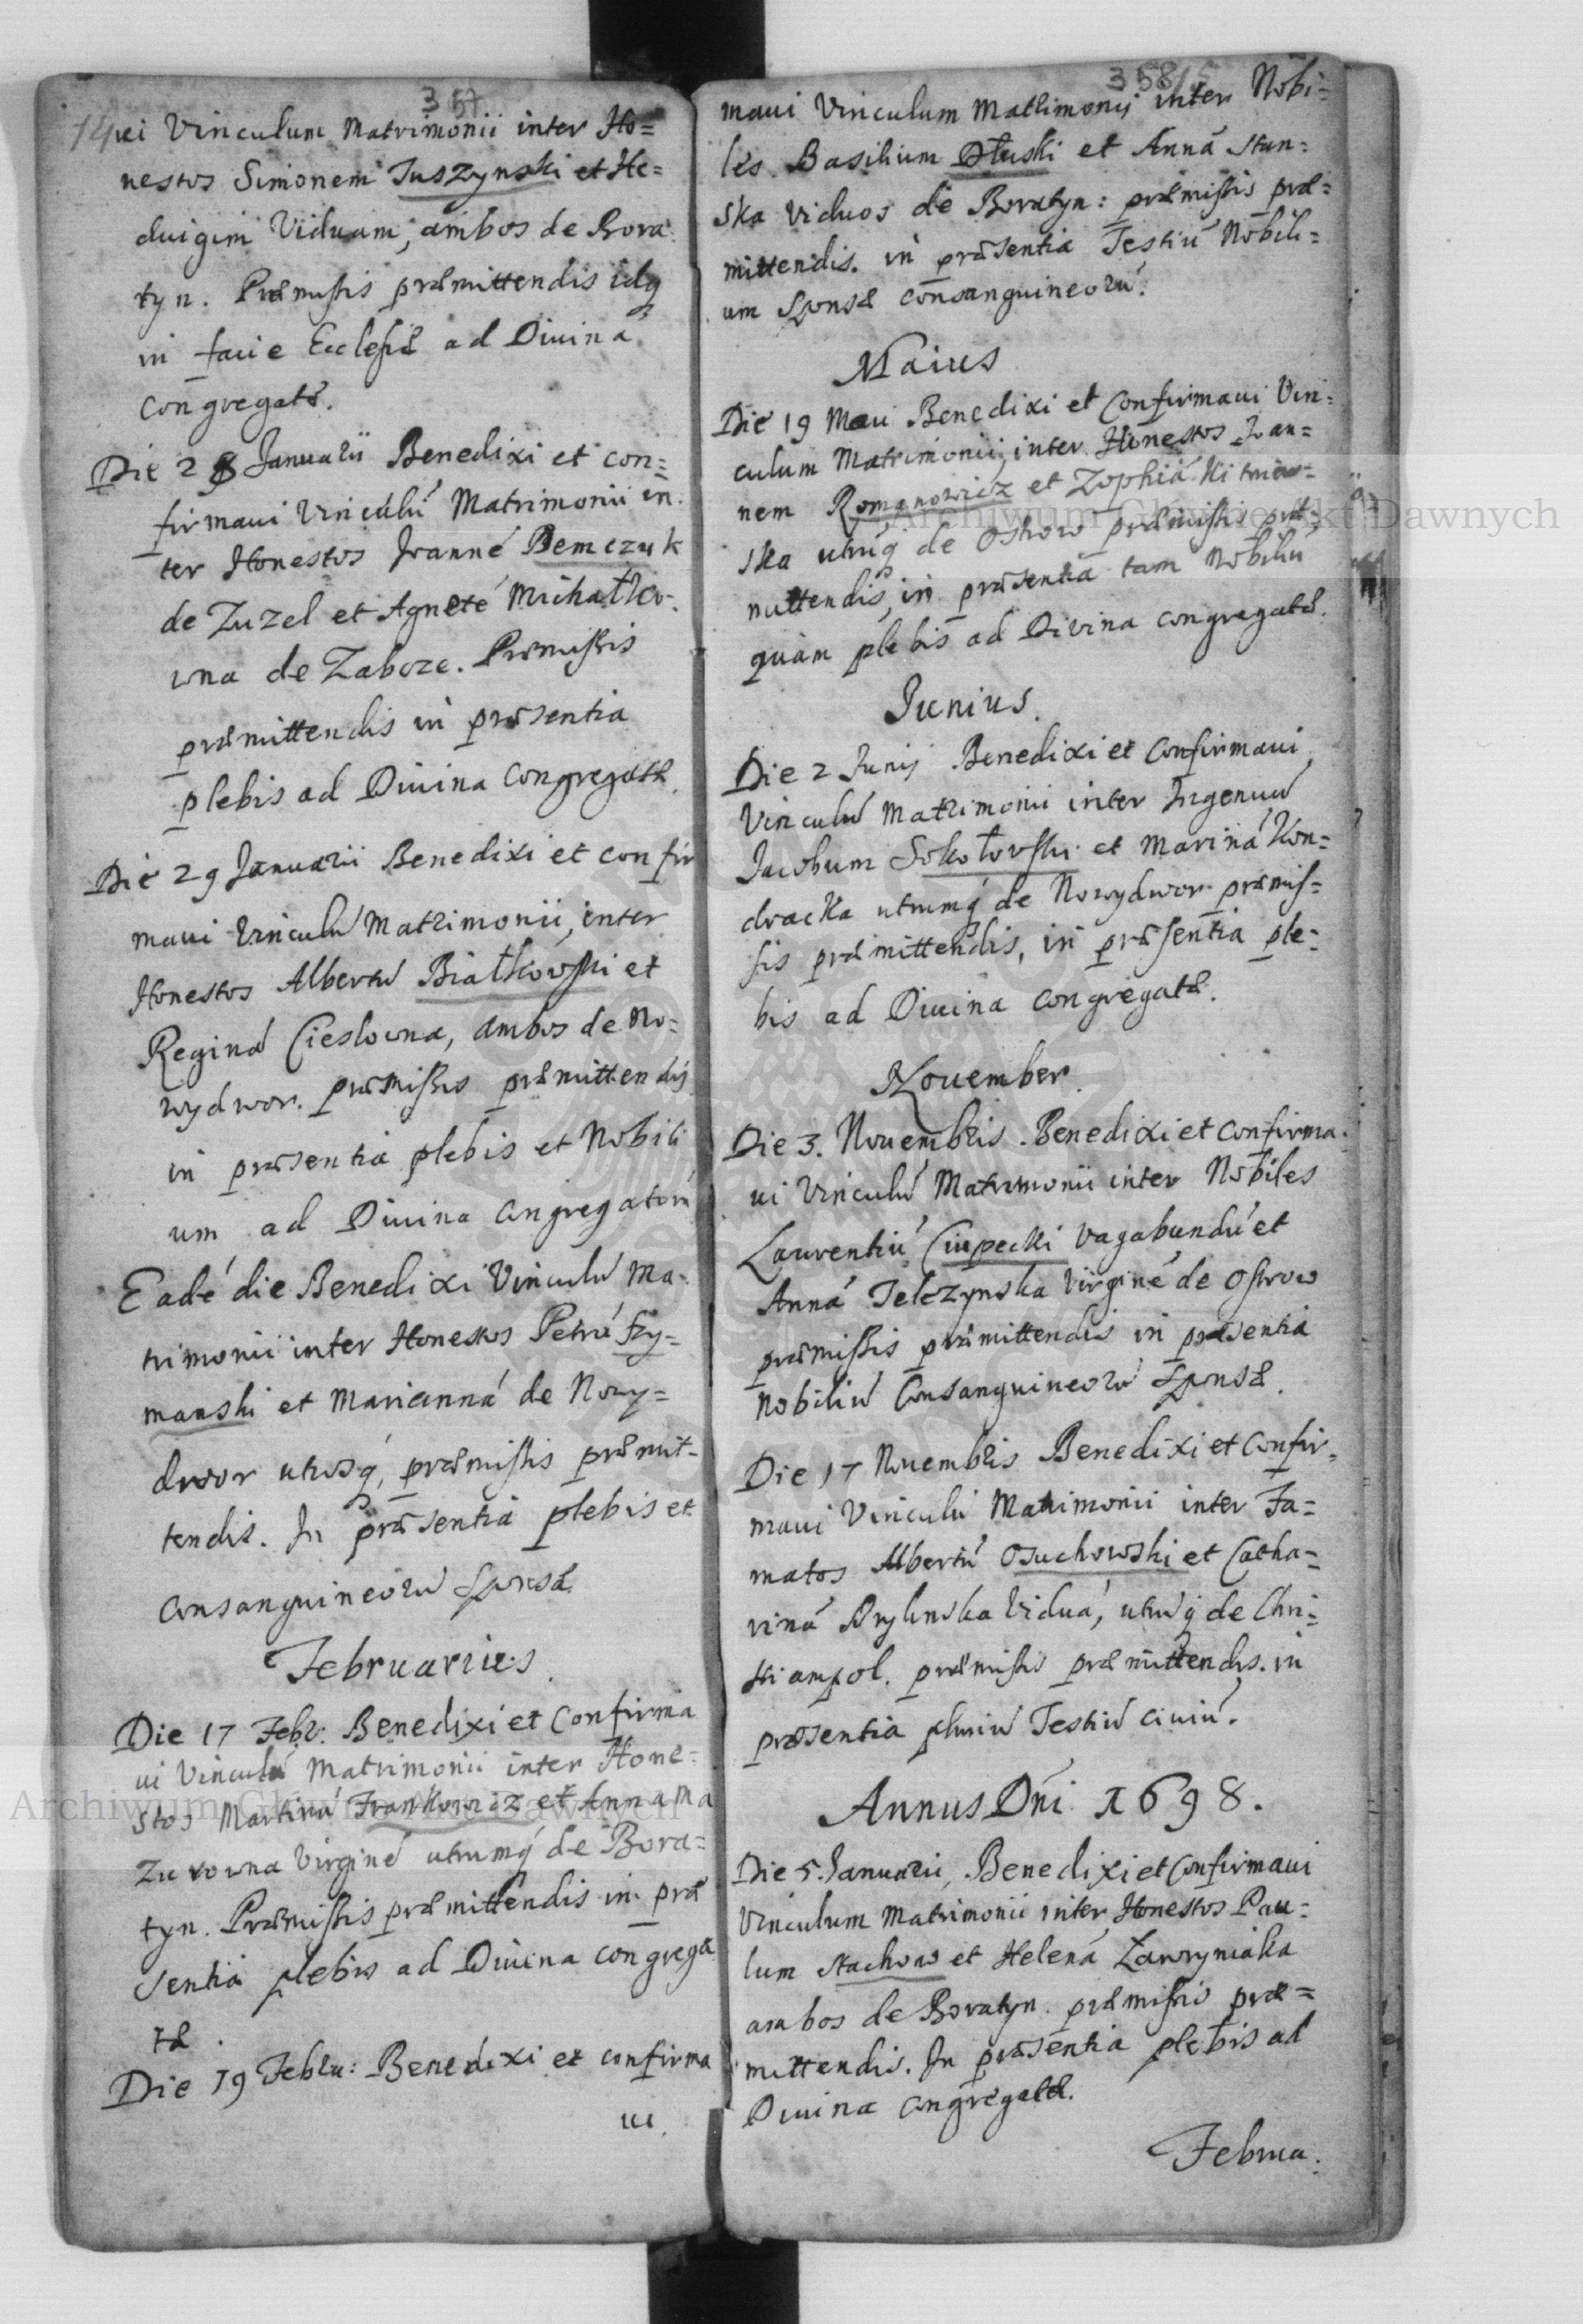 357
14
vi Vinculum Matrimonii inter Ho=
nestos Simonem Juszynski et He=
duigim Viduam, ambos de Bora
tyn. Præmissis præmittendis idq
in facie Ecclesiæ ad Diuina
congregatæ.
Die 28 Januarii Benedixi et con=
firmaui Vinculú Matrimonii in
ter Honestos Joanné Demczuk
de Zuzel et Agneté Michałko-
wna de Zaboze. Præmissis
præmittendis in præsentia
plebis ad Diuina congregatæ.
Die 29 Januarii Benedixi et confir
maui Vinculú Matrimonii, inter
Honestos Albertú Białkowski et
Reginá Cieslowna, ambos de No=
wydwor. præmissis præmittendis
in præsentia plebis et Nobili
um ad Diuina congregatorú
Eadé die Benedixi Vinculú Ma-
trimonii inter Honestos Petrú Szy=
manski et Marianná de Nowy=
dwor utrosq, præmissis præmit-
tendis. In præsentia plebis et
consanguineorú Sponsæ.
Februarius
Die 17 Febr: Benedixi et Confirma
ui Vinculú Matrimonii inter Hone=
stos Martinú Frankowicz et Anna Ma
zurowna Virginé utrumq de Bora=
tyn. Præmissis præmittendis in præ
sentia plebis ad Diuina congrega
tæ.
Die 19 Febru: Benedixi et confirma
ui.
358
maui Vinculum Matrimonij inter Nobi=
les Basilium Dłuski et Anná Stan=
ska viduos de Boratyn: præmissis præ=
mittendis. in præsentia Testiú Nobili=
um Sponsæ consanguineorú.
Maius
Die 19 Maii Benedixi et Confirmaui Vin=
culum Matrimonii, inter Honestos Joan=
nem Romanowicz et Zophiá
ska utrúq de Ostrow præmissis præ=
mittendis, in præsentia tam Nobiliú
quàm plebis ad Divina congregatæ.
Junius.
Die 2 Junij Benedixi et Confirmaui
Vinculú Matrimonii inter Ingenuú
Jacobum Sokołowski et Mariná Kon=
dracka utrumq de Nowydwor præmis=
sis præmittendis, in præsentia ple=
bis ad Diuina congregatæ.
November.
Die 3. Nouembris. Benedixi et Confirma-
ui Vinculú Matrimonii inter Nobiles
Laurentiú Ciupecki Vagabundú et
Anná Telczynska Virginé de Ostrow
præmissis præmittendis in præsentia
Nobiliú Consanguineorú Sponsæ.
Die 17 Nouembris Benedixi et Confir-
maui Vinculú Matrimonii inter Fa=
matos Albertú Osuchowski et Catha=
riná Drylinska Viduá, utrúq de Chri=
stiampol. præmissis præmittendis. in
præsentia pluriú Testiú ciuiú.
Annus Dńi 1698.
Die 5. Januarii, Benedixi et Confirmaui
Vinculum Matrimonii inter Honestos Pau=
lum Stachow et Helená Zawryniaka
ambos de Boratyn. præmissis præ=
mittendis. In præsentia plebis ad
Diuina congregatæ.
Februa.
Archiwum Główne Akt Dawnych
Archiwum Główne Akt Dawnych